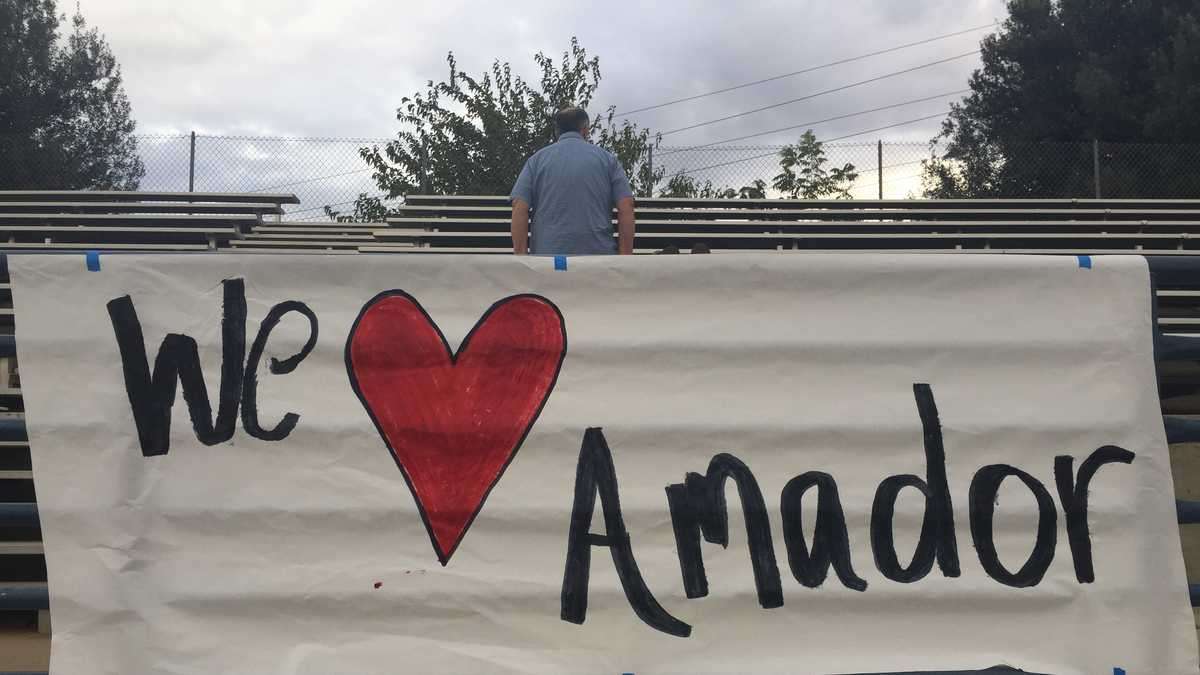 We ❤ Amador